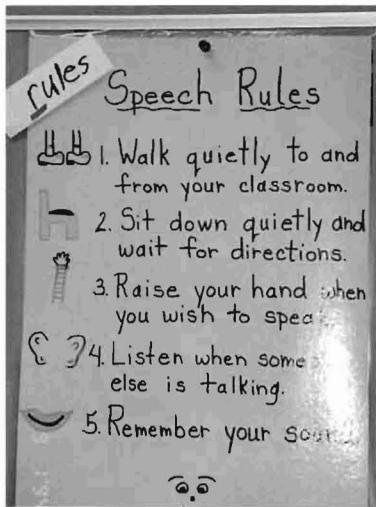 rules
Speech Rules
1. Walk quietly to and
from your classroom.
2. Sit down quietly and
wait for directions.
3. Raise your hand when
you wish to
4. Listen when
else is talking.
5. Remember your